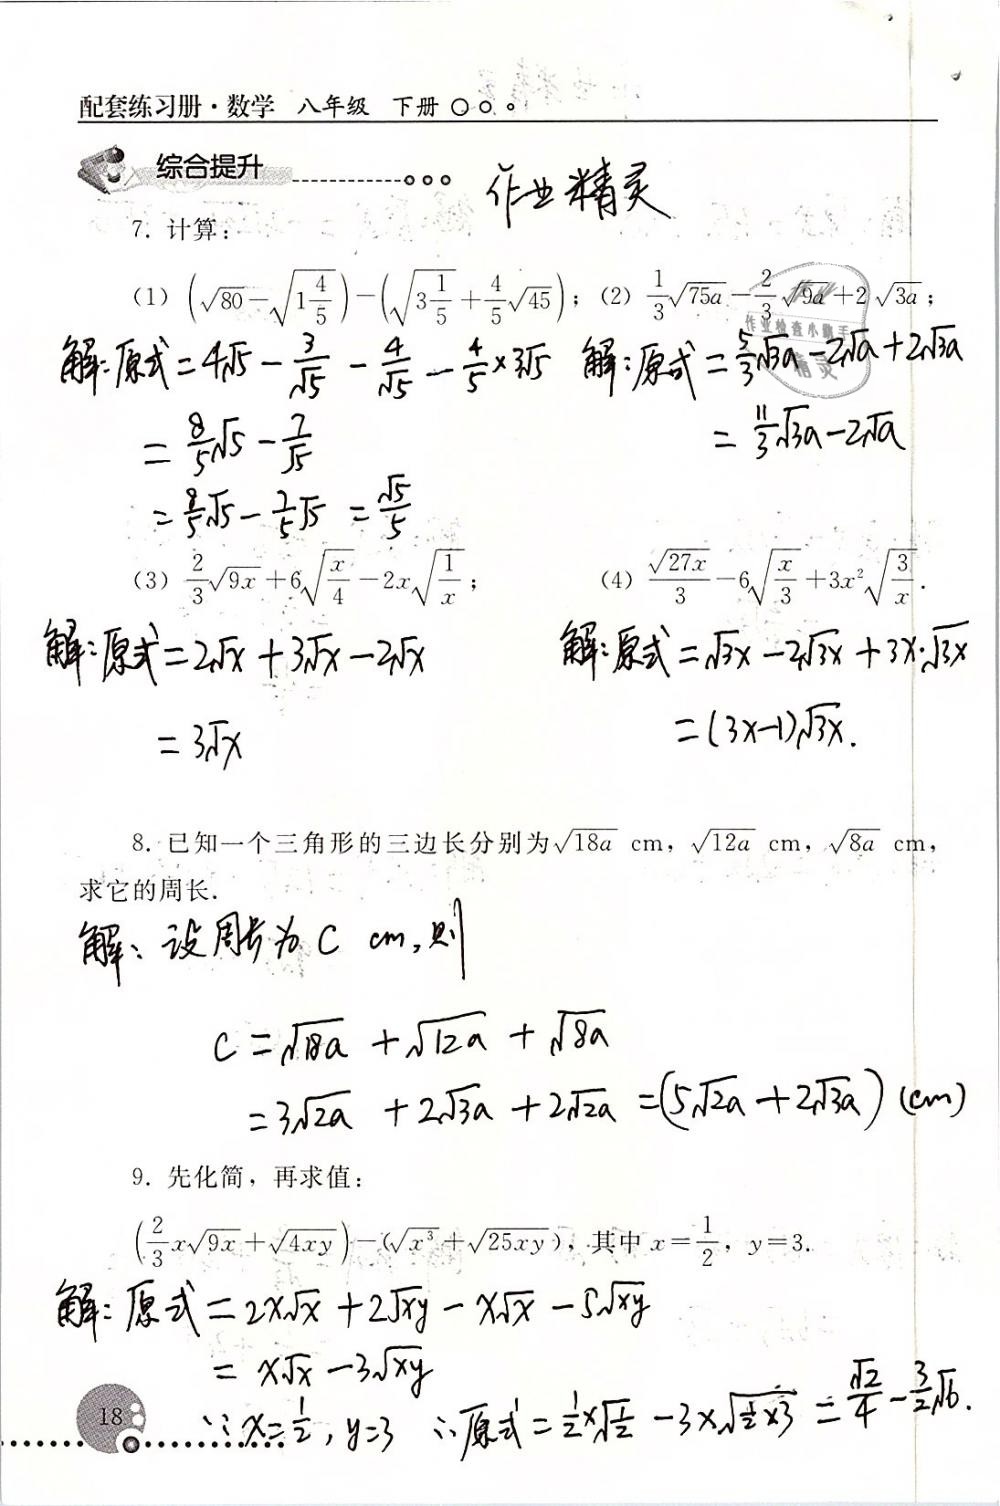 配套练习册·数学 八年级 下册
综合提升
作业精灵
7. 计算:
(1) (√80−√(1 4/5))−(√(3 1/5)+4/5√45); (2) 1/3√75a−2/3√9a+2√3a;
解:原式=4√5−3/√5−4/√5−4/5×3√5 解:原式=5/3√3a−2√a+2√3a
=8/5√5−7/√5 =11/3√3a−2√a
=8/5√5−7/5√5=√5/5
(3) 2/3√9x+6√(x/4)−2x√(1/x); (4) √27x/3−6√(x/3)+3x²√(3/x).
解:原式=2√x+3√x−2√x 解:原式=√3x−2√3x+3x·√3x
=3√x =(3x−1)√3x.
8. 已知一个三角形的三边长分别为√18a cm, √12a cm, √8a cm,
求它的周长.
解:设周长为C cm,则
C=√18a+√12a+√8a
=3√2a+2√3a+2√2a=(5√2a+2√3a)(cm)
9. 先化简,再求值:
(2/3x√9x+√4xy)−(√x³+√25xy),其中x=1/2,y=3.
解:原式=2x√x+2√xy−x√x−5√xy
=x√x−3√xy
∵x=1/2,y=3 ∴原式=1/2×√(1/2)−3×√(1/2×3)=√2/4−3/2√6.
18